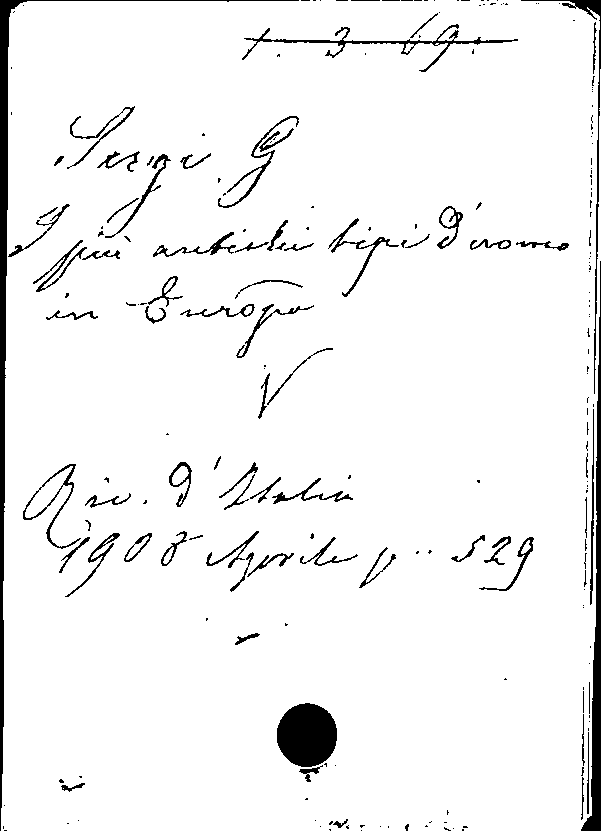 1. 3. 69.
Sergi G
I più antichi tipi d'uomo
in Europa
V
Riv. d'Italia
1908 Aprile p. 529